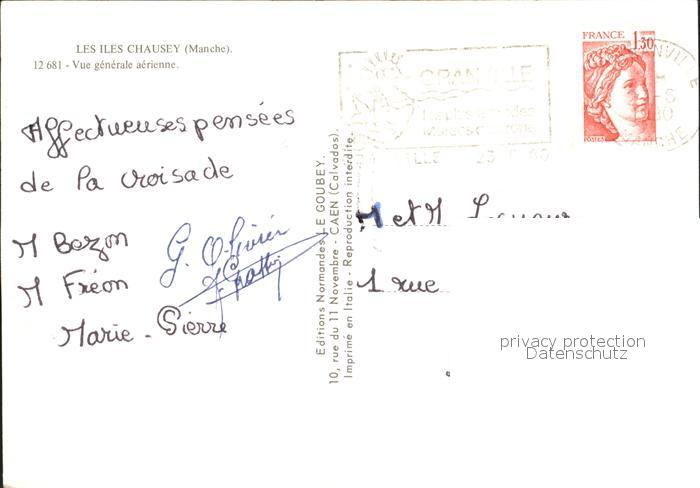 LES ILES CHAUSEY (Manche).
12 681 - Vue générale aérienne.
Affectueuses pensées
de la croisade
M Bazon
M Fréon
Marie-Pierre
G. Olivier
Editions Normandes LE GOUBEY.
10, rue du 11 Novembre - CAEN (Calvados).
Imprimé en Italie - Reproduction interdite.
GRANVILLE
FRANCE 1,30
POSTES
M et M
1 rue
privacy protection
Datenschutz